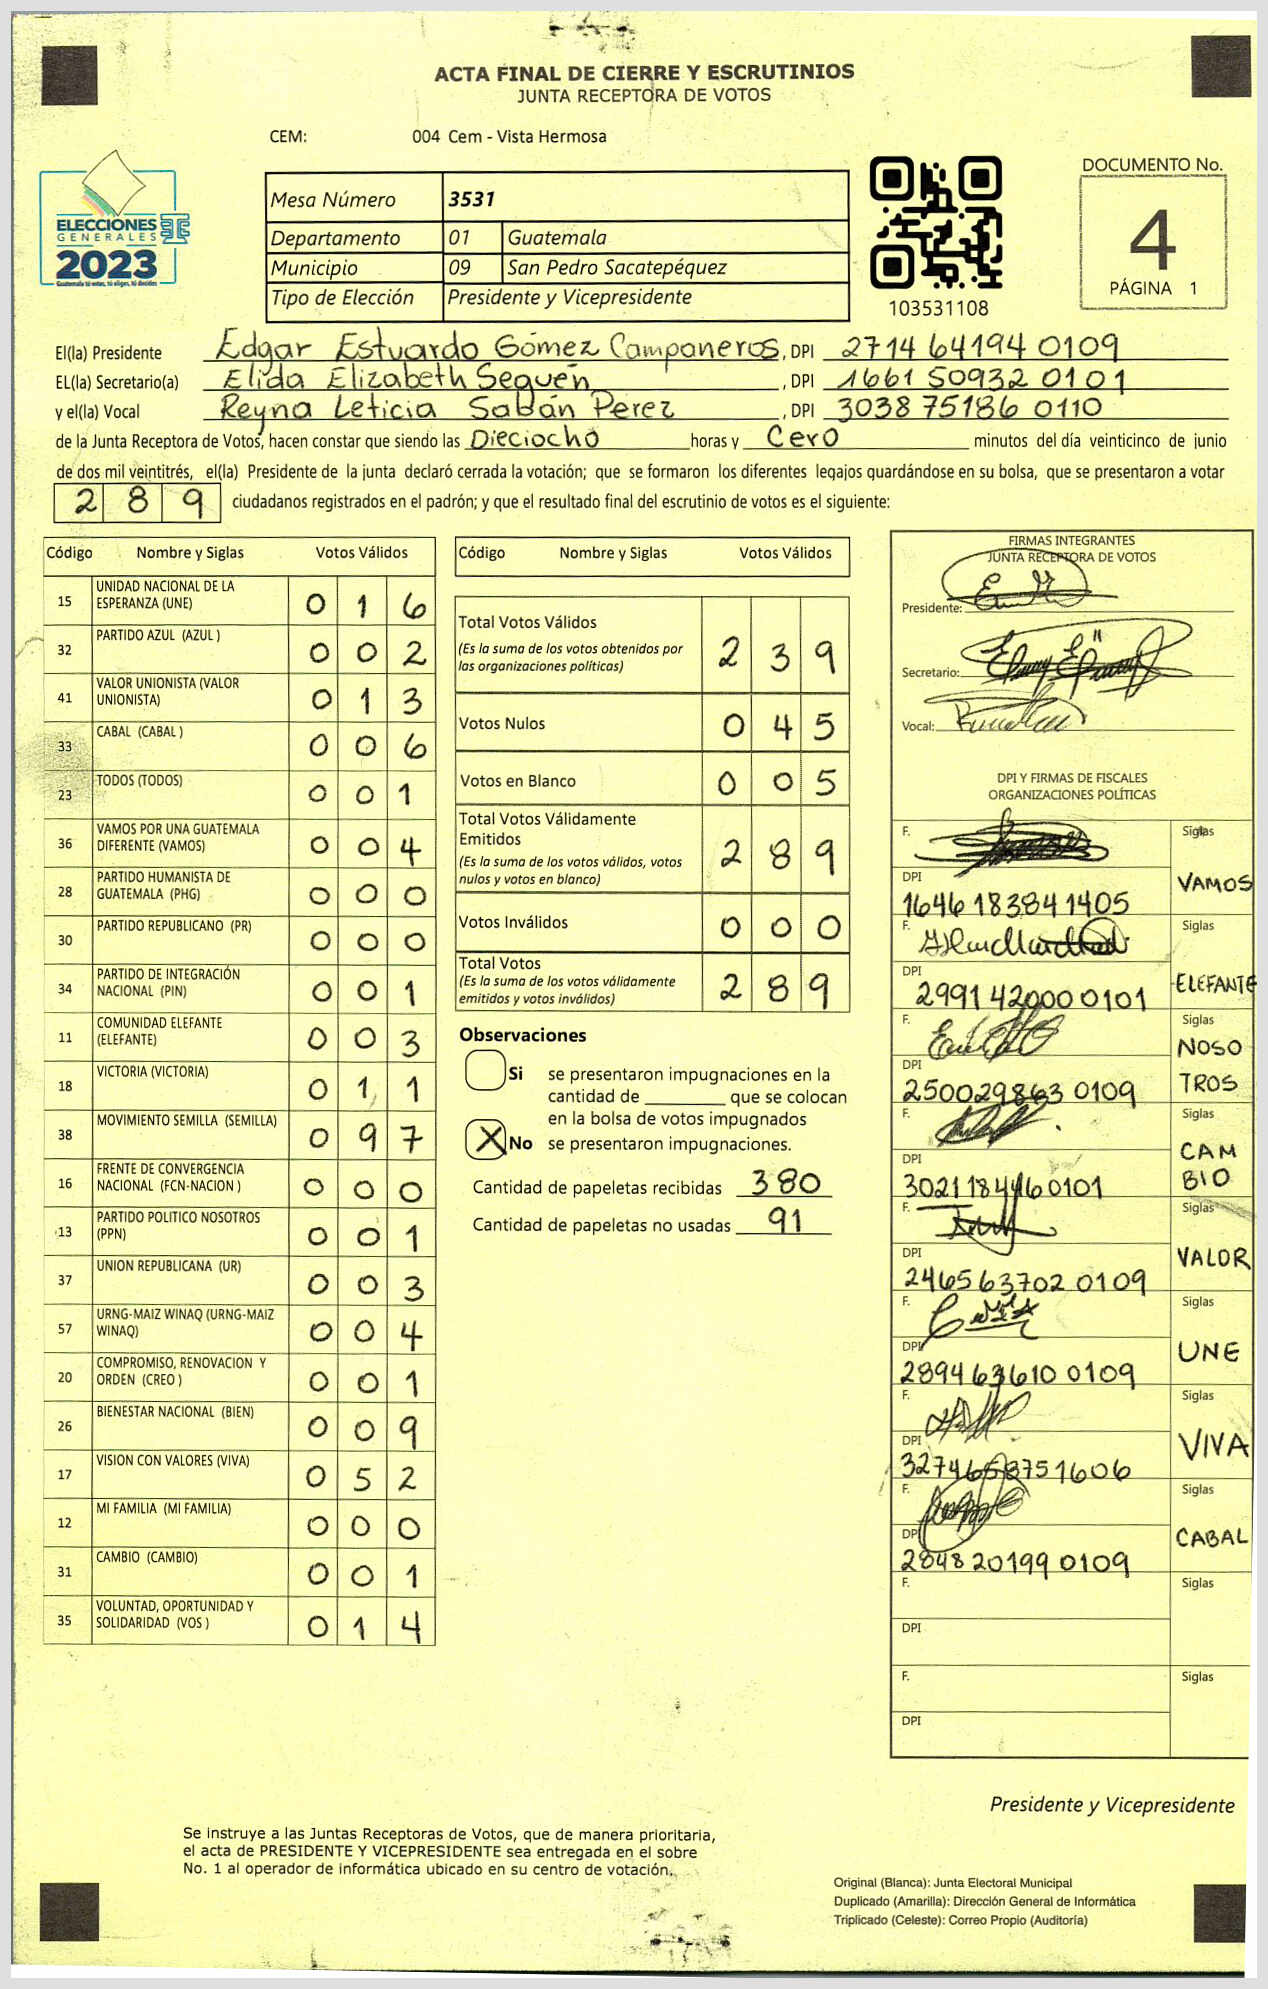 ACTA FINAL DE CIERRE Y ESCRUTINIOS
JUNTA RECEPTORA DE VOTOS
CEM: 004 Cem - Vista Hermosa
ELECCIONES
GENERALES
2023
Guatemala tú votas, tú eliges, tú decides
Mesa Número 3531
Departamento 01 Guatemala
Municipio 09 San Pedro Sacatepéquez
Tipo de Elección Presidente y Vicepresidente
103531108
DOCUMENTO No.
4
PÁGINA 1
El(la) Presidente Edgar Estuardo Gómez Campaneros, DPI 2714 64194 0109
EL(la) Secretario(a) Elida Elizabeth Sequén, DPI 1661 50932 0101
y el(la) Vocal Reyna Leticia Sabán Perez, DPI 3038 75186 0110
de la Junta Receptora de Votos, hacen constar que siendo las Dieciocho horas y Cero minutos del día veinticinco de junio
de dos mil veintitrés, el(la) Presidente de la junta declaró cerrada la votación; que se formaron los diferentes legajos guardándose en su bolsa, que se presentaron a votar
289 ciudadanos registrados en el padrón; y que el resultado final del escrutinio de votos es el siguiente:
Código Nombre y Siglas Votos Válidos
15 UNIDAD NACIONAL DE LA ESPERANZA (UNE) 016
32 PARTIDO AZUL (AZUL ) 002
41 VALOR UNIONISTA (VALOR UNIONISTA) 013
33 CABAL (CABAL ) 006
23 TODOS (TODOS) 001
36 VAMOS POR UNA GUATEMALA DIFERENTE (VAMOS) 004
28 PARTIDO HUMANISTA DE GUATEMALA (PHG) 000
30 PARTIDO REPUBLICANO (PR) 000
34 PARTIDO DE INTEGRACIÓN NACIONAL (PIN) 001
11 COMUNIDAD ELEFANTE (ELEFANTE) 003
18 VICTORIA (VICTORIA) 011
38 MOVIMIENTO SEMILLA (SEMILLA) 097
16 FRENTE DE CONVERGENCIA NACIONAL (FCN-NACION ) 000
13 PARTIDO POLITICO NOSOTROS (PPN) 001
37 UNION REPUBLICANA (UR) 003
57 URNG-MAIZ WINAQ (URNG-MAIZ WINAQ) 004
20 COMPROMISO, RENOVACION Y ORDEN (CREO ) 001
26 BIENESTAR NACIONAL (BIEN) 009
17 VISION CON VALORES (VIVA) 052
12 MI FAMILIA (MI FAMILIA) 000
31 CAMBIO (CAMBIO) 001
35 VOLUNTAD, OPORTUNIDAD Y SOLIDARIDAD (VOS ) 014
Código Nombre y Siglas Votos Válidos
Total Votos Válidos 239
(Es la suma de los votos obtenidos por
las organizaciones políticas)
Votos Nulos 045
Votos en Blanco 005
Total Votos Válidamente
Emitidos 289
(Es la suma de los votos válidos, votos
nulos y votos en blanco)
Votos Inválidos 000
Total Votos 289
(Es la suma de los votos válidamente
emitidos y votos inválidos)
Observaciones
Si se presentaron impugnaciones en la
cantidad de ________ que se colocan
en la bolsa de votos impugnados
X No se presentaron impugnaciones.
Cantidad de papeletas recibidas 380
Cantidad de papeletas no usadas 91
FIRMAS INTEGRANTES
JUNTA RECEPTORA DE VOTOS
Presidente:
Secretario:
Vocal:
DPI Y FIRMAS DE FISCALES
ORGANIZACIONES POLÍTICAS
F. Siglas
DPI VAMOS
1646 18384 1405
F. Siglas
DPI ELEFANTE
2991 42000 0101
F. Siglas
NOSO
DPI TROS
2500 29863 0109
F. Siglas
CAM
DPI BIO
3021 18446 0101
F. Siglas
DPI VALOR
2465 63702 0109
F. Siglas
DPI UNE
2894 63610 0109
F. Siglas
DPI VIVA
3274 65875 1606
F. Siglas
DPI CABAL
2848 20199 0109
F. Siglas
DPI
F. Siglas
DPI
Presidente y Vicepresidente
Se instruye a las Juntas Receptoras de Votos, que de manera prioritaria,
el acta de PRESIDENTE Y VICEPRESIDENTE sea entregada en el sobre
No. 1 al operador de informática ubicado en su centro de votación.
Original (Blanca): Junta Electoral Municipal
Duplicado (Amarilla): Dirección General de Informática
Triplicado (Celeste): Correo Propio (Auditoría)